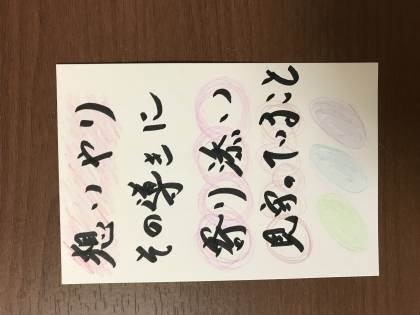 想いやり
その導きに
寄り添い
見守っていること